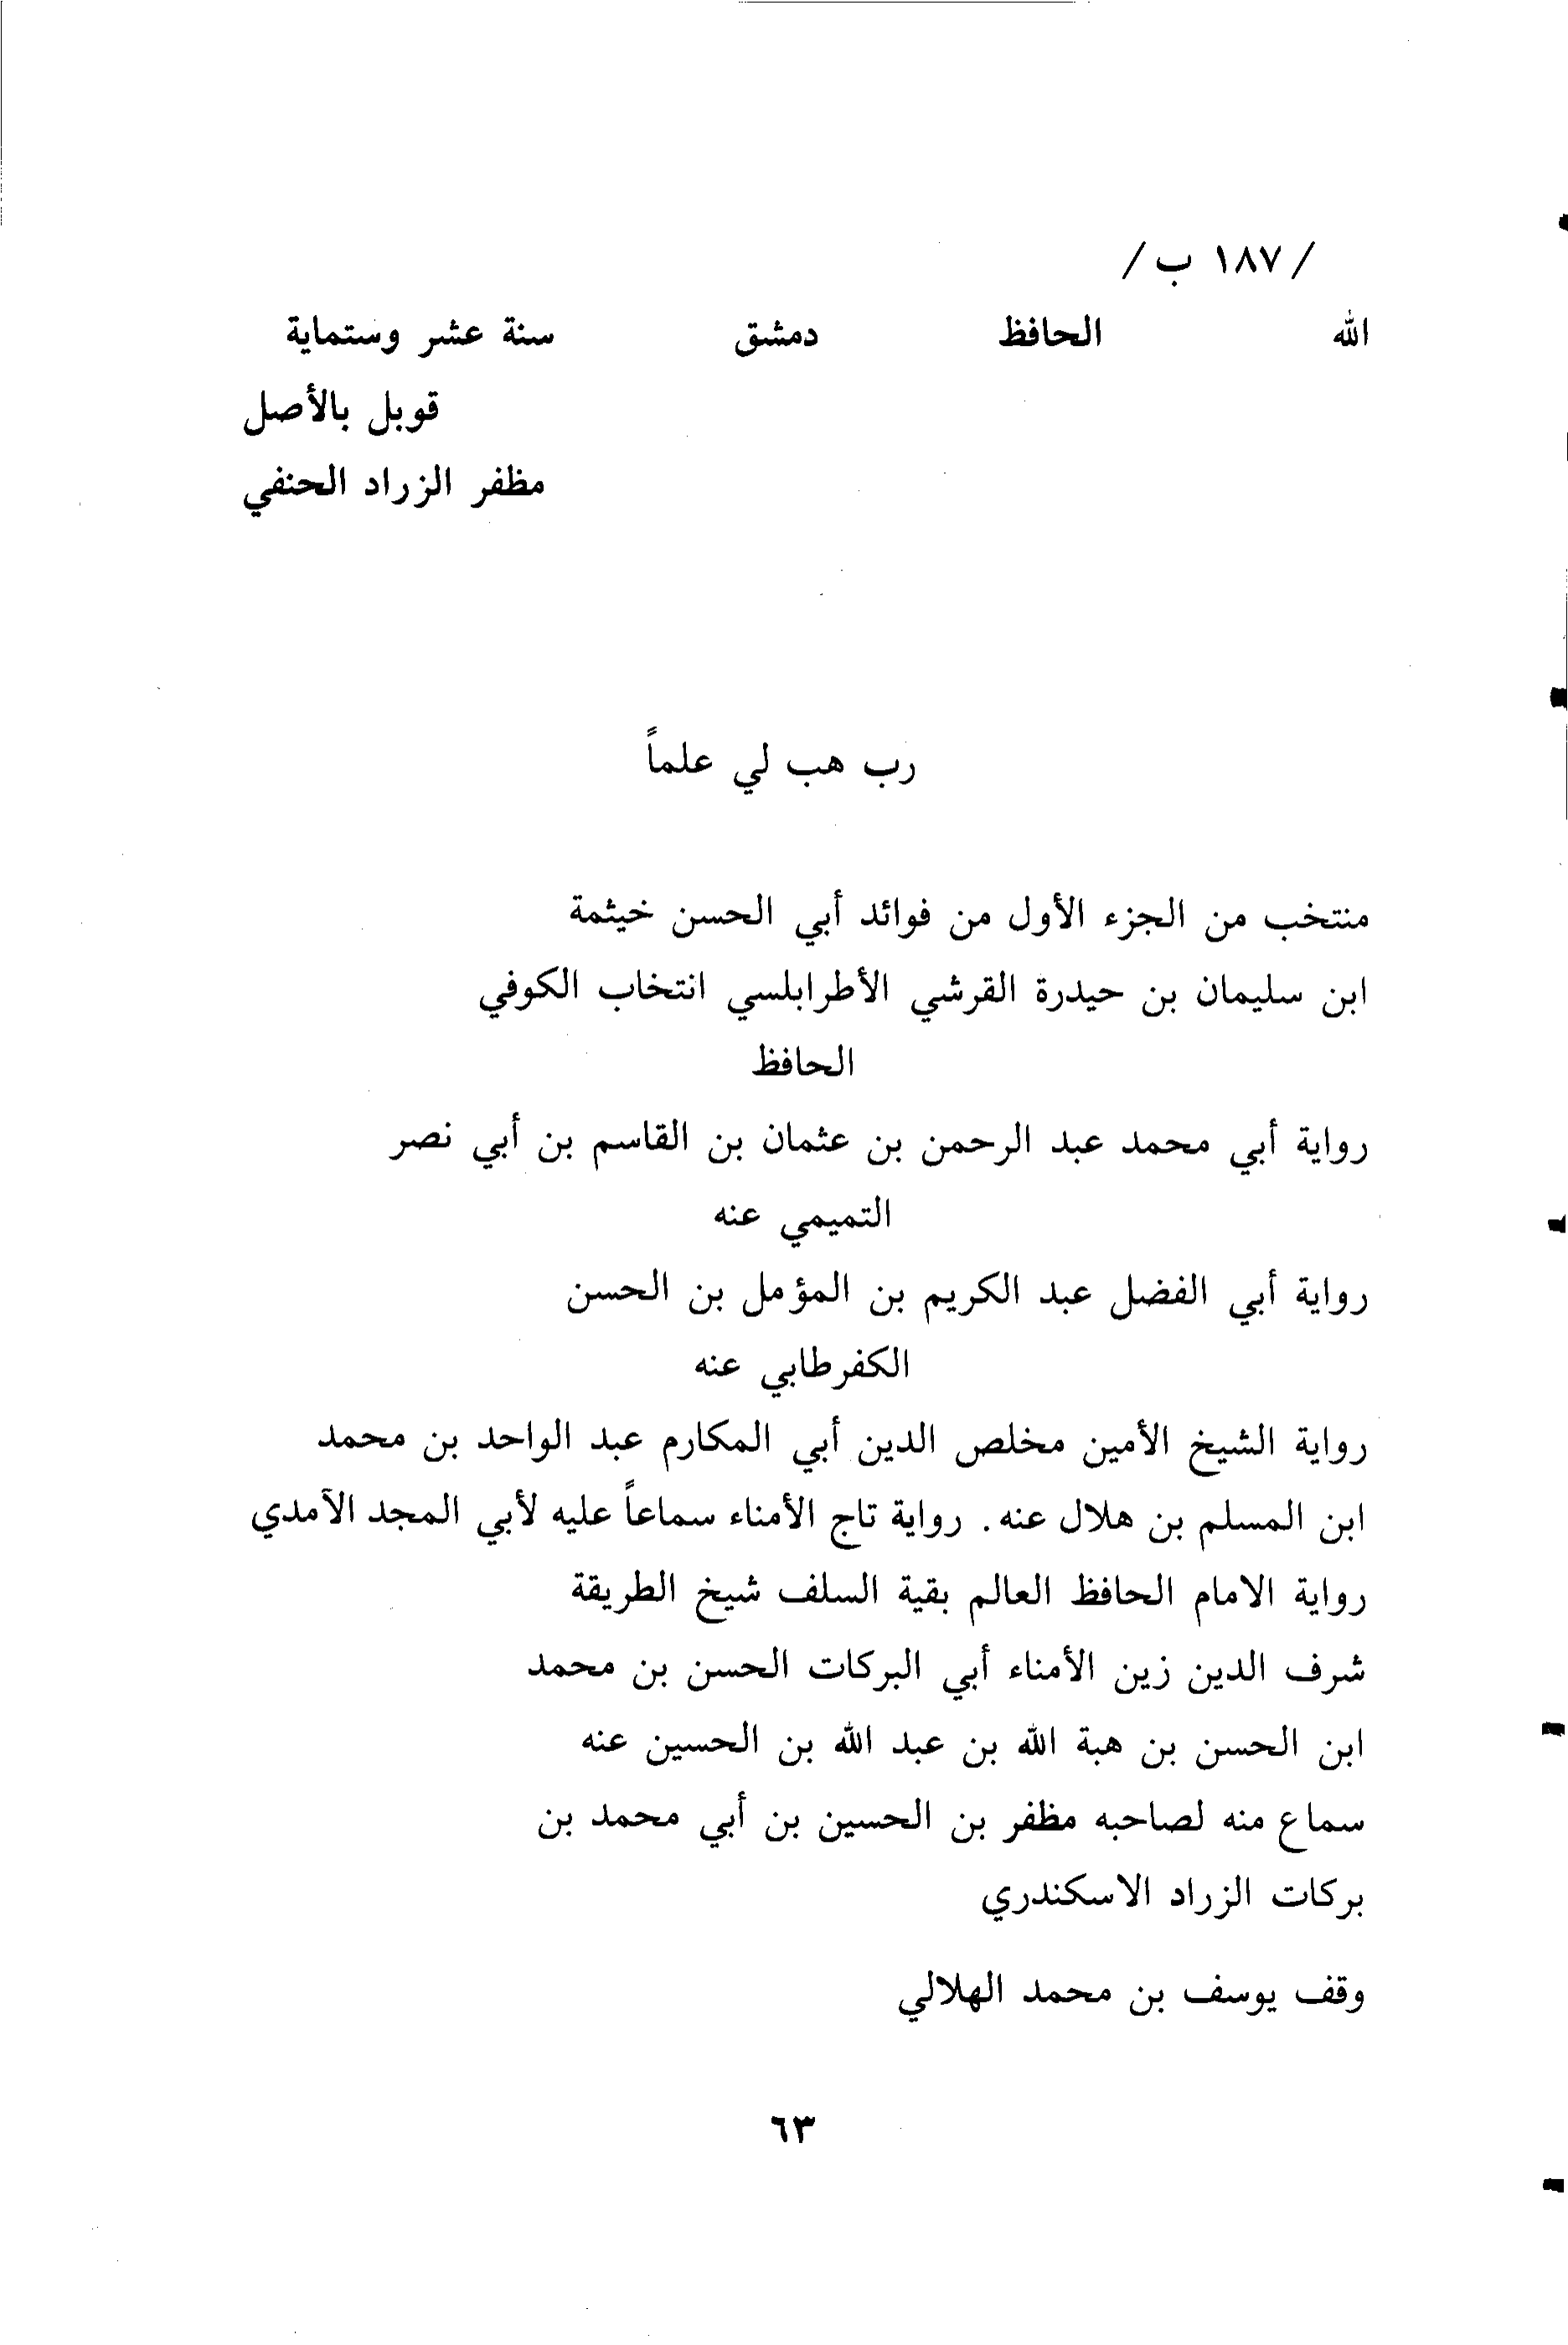 / ١٨٧ ب /
الله الحافظ دمشق سنة عشر وستماية
قوبل بالأصل
مظفر الزراد الحنفي
رب هب لي علماً
منتخب من الجزء الأول من فوائد أبي الحسن خيثمة
ابن سليمان بن حيدرة القرشي الأطرابلسي انتخاب الكوفي
الحافظ
رواية أبي محمد عبد الرحمن بن عثمان بن القاسم بن أبي نصر
التميمي عنه
رواية أبي الفضل عبد الكريم بن المؤمل بن الحسن
الكفرطابي عنه
رواية الشيخ الأمين مخلص الدين أبي المكارم عبد الواحد بن محمد
ابن المسلم بن هلال عنه. رواية تاج الأمناء سماعاً عليه لأبي المجد الآمدي
رواية الامام الحافظ العالم بقية السلف شيخ الطريقة
شرف الدين زين الأمناء أبي البركات الحسن بن محمد
ابن الحسن بن هبة الله بن عبد الله بن الحسين عنه
سماع منه لصاحبه مظفر بن الحسين بن أبي محمد بن
بركات الزراد الاسكندري
وقف يوسف بن محمد الهلالي
٦٣